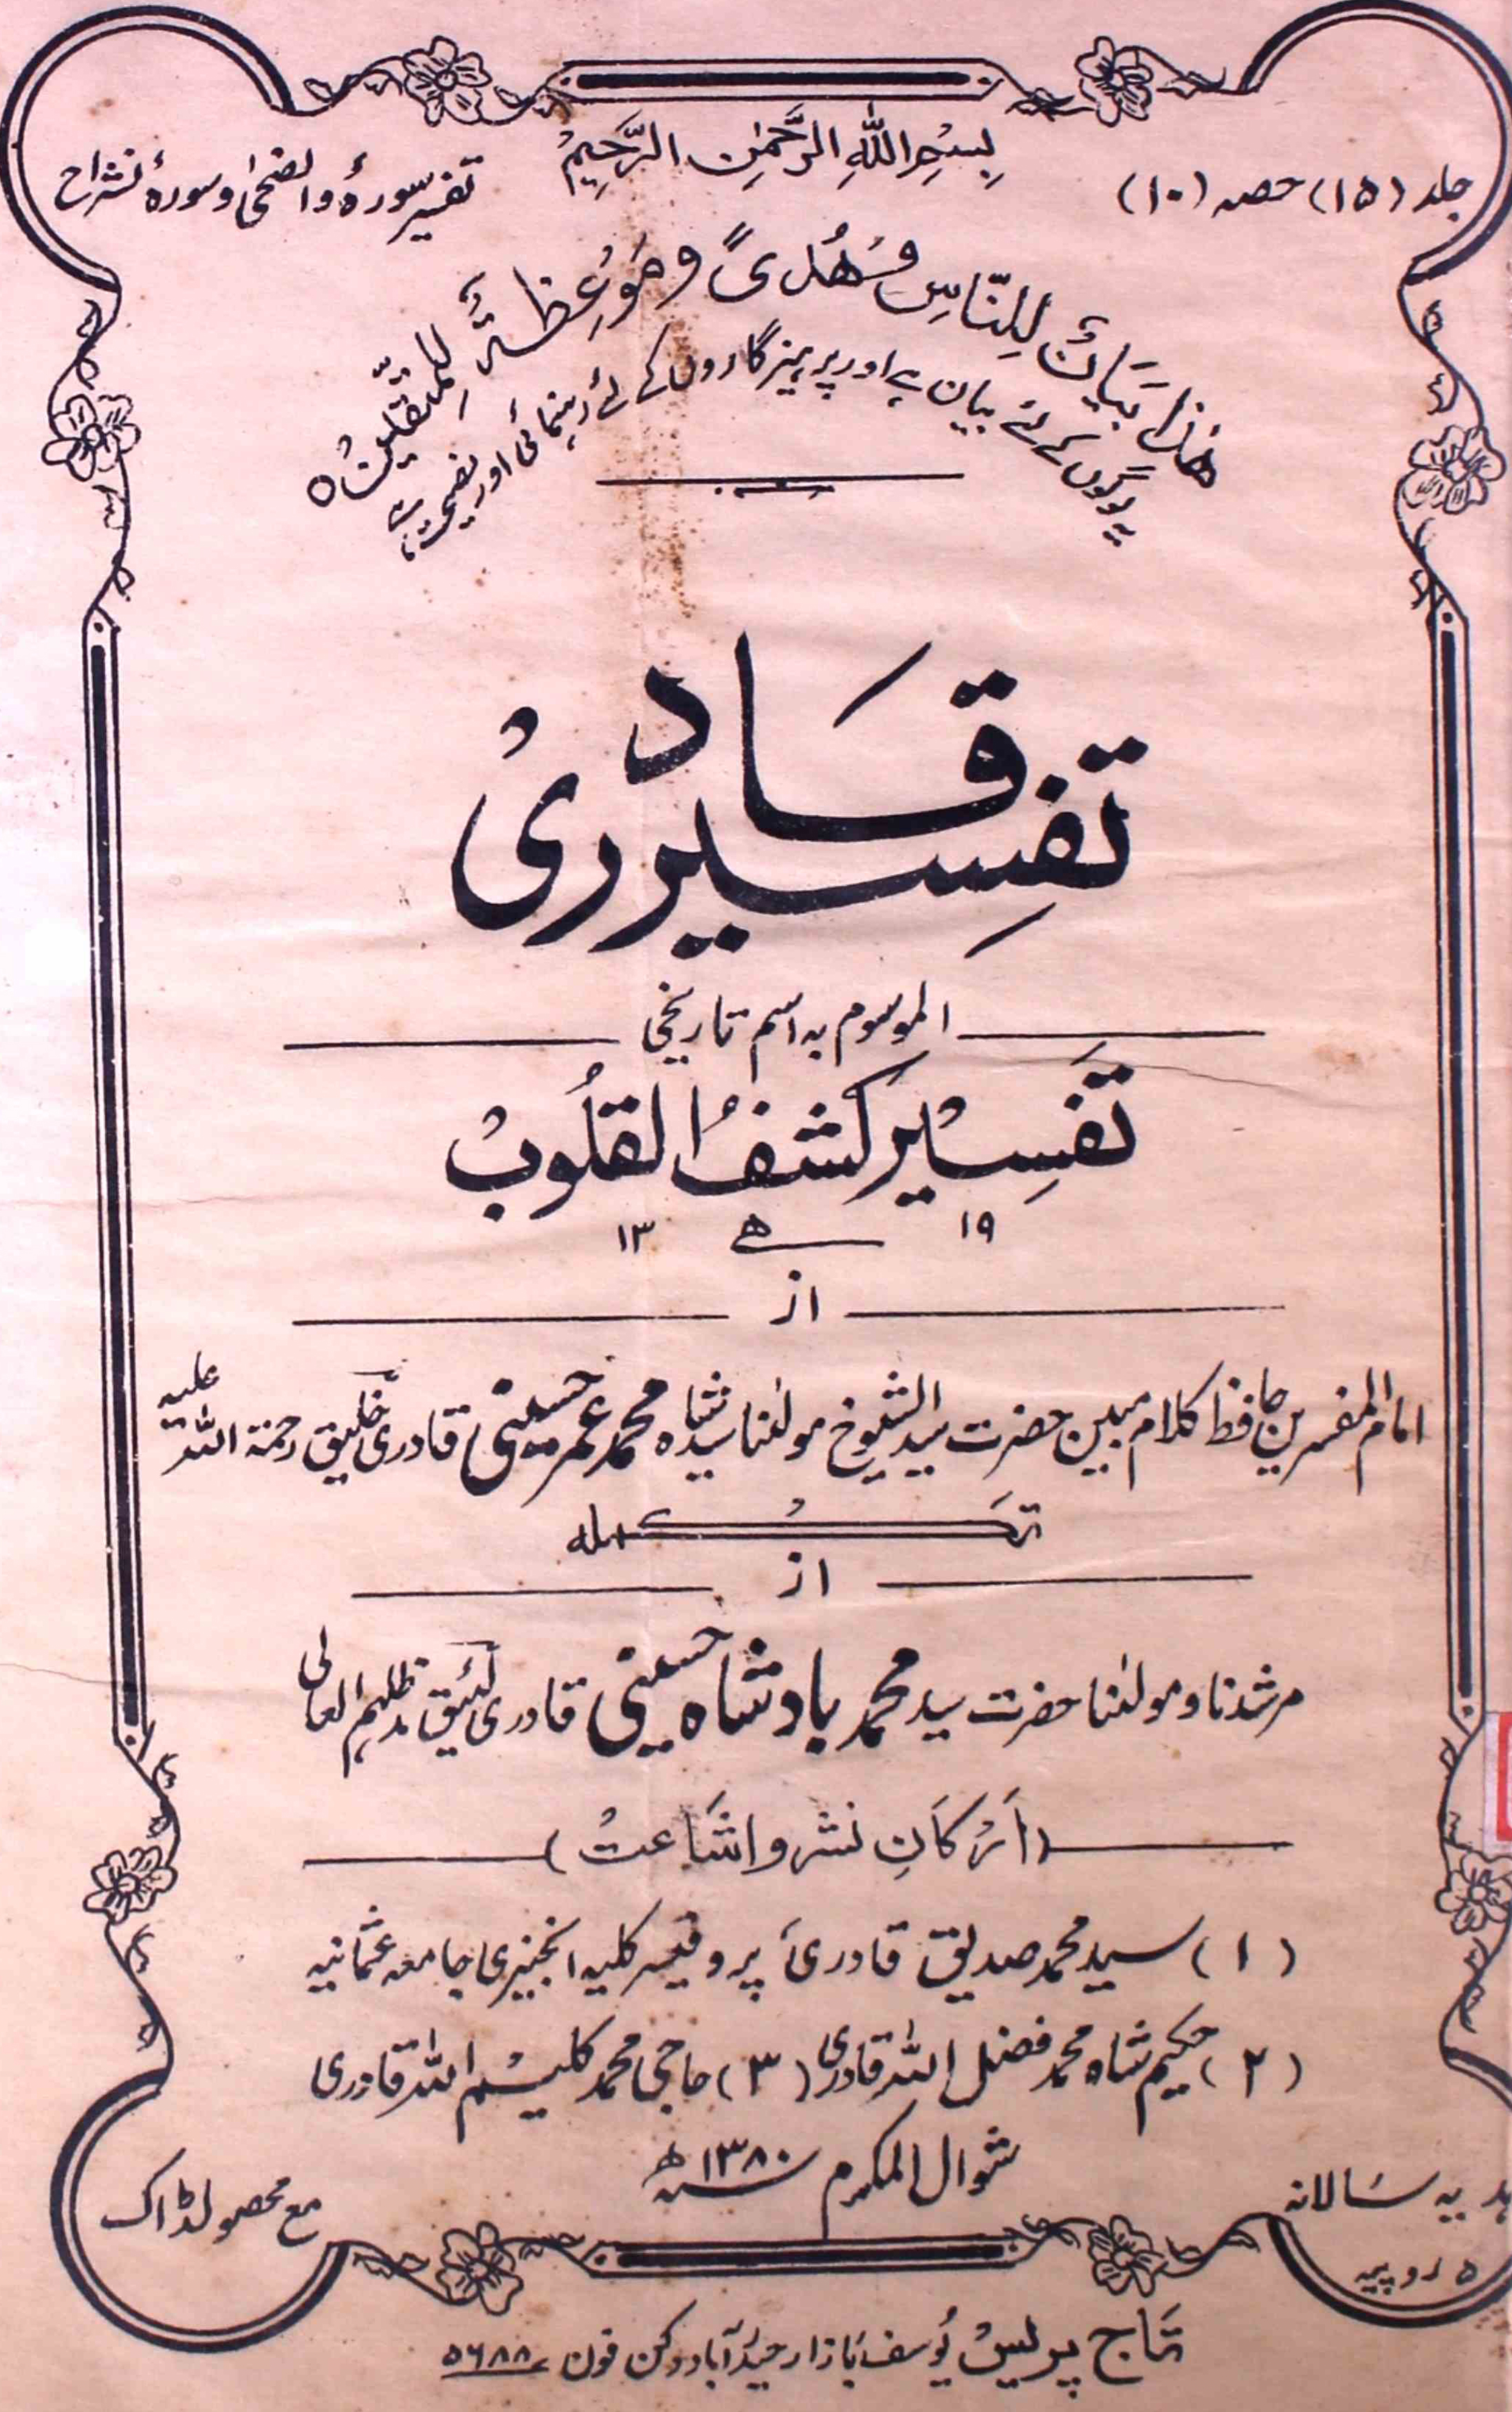 بِسْمِ اللهِ الرَّحْمٰنِ الرَّحِيْمُ
جلد (۱۵) حصہ (۱۰)
تفسیر سورۂ والضحیٰ و سورۂ نشراح
هٰذَا بَيَانٌ لِلنَّاسِ وَهُدًى وَمَوْعِظَةٌ لِلْمُتَّقِيْنَ ٥
یہ لوگوں کے لئے بیان ہے اور پرہیزگاروں کے لئے رہنمائی اور نصیحت ہے
تفسِیر قَادریْ
الموسوم بہ اسم تاریخی
تَفسِیْر کَشفُ القلُوبْ
۱۳ ھ ۱۹
از
امام المفسرین حافظ کلام مبین حضرت سید الشیوخ مولٰنا سید شاہ محمد عمر حسینی قادری خلیق رحمۃ اللہ علیہ
تکملہ
از
مرشدنا و مولٰنا حضرت سید محمد بادشاہ حسینی قادری لئیق مدظلہم العالی
(اَرْکَانِ نشر و اشَاعتْ)
(۱) سید محمد صدیق قادری پروفیسر کلیہ انجنیری جامعہ عثمانیہ
(۲) حکیم شاہ محمد فضل اللہ قادری (۳) حاجی محمد کلیم اللہ قادری
شوال المکرم سنہ ۱۳۸۰ ھ
ہدیہ سَالانہ
۵ روپیہ
مع محصولڈاک
تاج پریس یُوسف بازار حیدرآباد دکن فون ۵۶۸۸